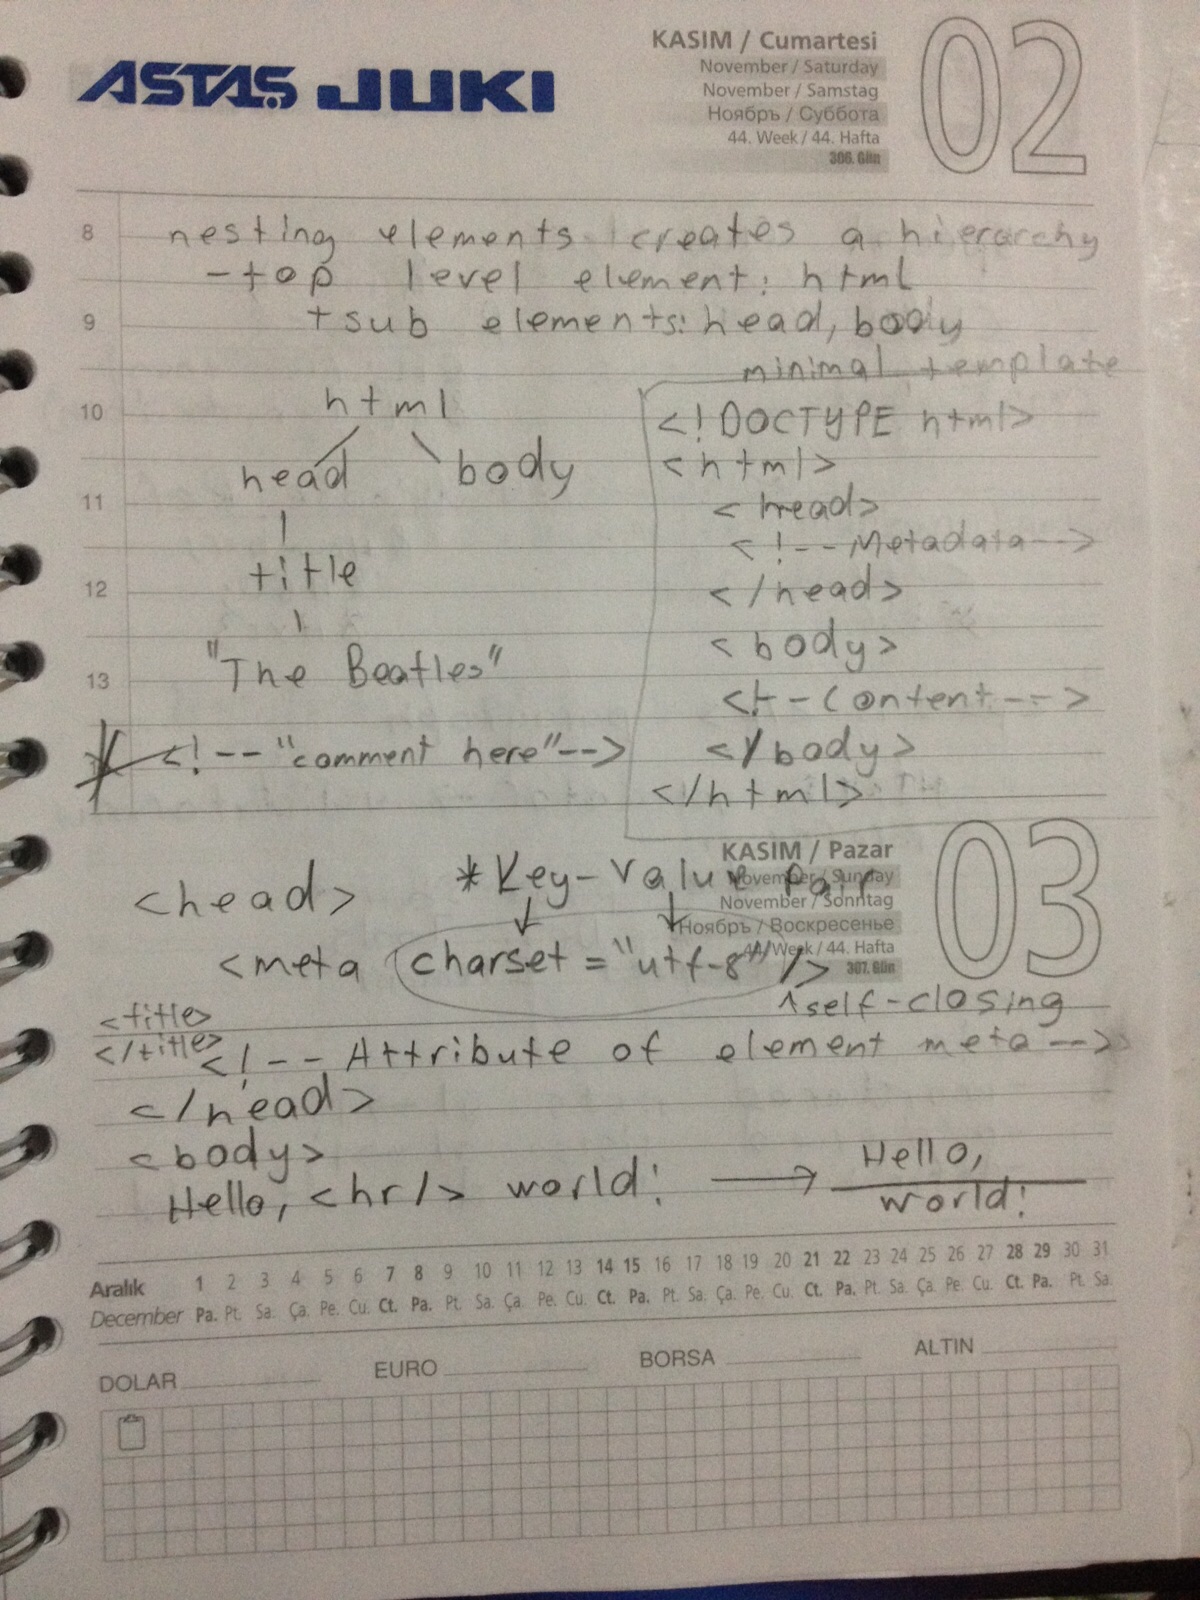 ASTAŞ JUKI
KASIM / Cumartesi
November / Saturday
November / Samstag
Ноябрь / Суббота
44. Week / 44. Hafta
306. Gün
02
8 nesting elements creates a hierarchy
- top level element: html
9 + sub elements: head, body
minimal template
10 html
head body
11
title
12
"The Beatles"
13
<!-- "comment here" -->
<!DOCTYPE html>
<html>
<head>
<!-- Metadata -->
</head>
<body>
<!-- Content -->
</body>
</html>
KASIM / Pazar
November / Sunday
November / Sonntag
Ноябрь / Воскресенье
44. Week / 44. Hafta
307. Gün
03
* Key-Value Pair
<head>
<meta charset = "utf-8" />
^ self-closing
<title>
</title>
<!-- Attribute of element meta -->
</head>
<body>
Hello, <hr/> world! → Hello,
world!
Aralık 1 2 3 4 5 6 7 8 9 10 11 12 13 14 15 16 17 18 19 20 21 22 23 24 25 26 27 28 29 30 31
December Pa. Pt. Sa. Ça. Pe. Cu. Ct. Pa. Pt. Sa. Ça. Pe. Cu. Ct. Pa. Pt. Sa. Ça. Pe. Cu. Ct. Pa. Pt. Sa. Ça. Pe. Cu. Ct. Pa. Pt. Sa.
DOLAR EURO BORSA ALTIN